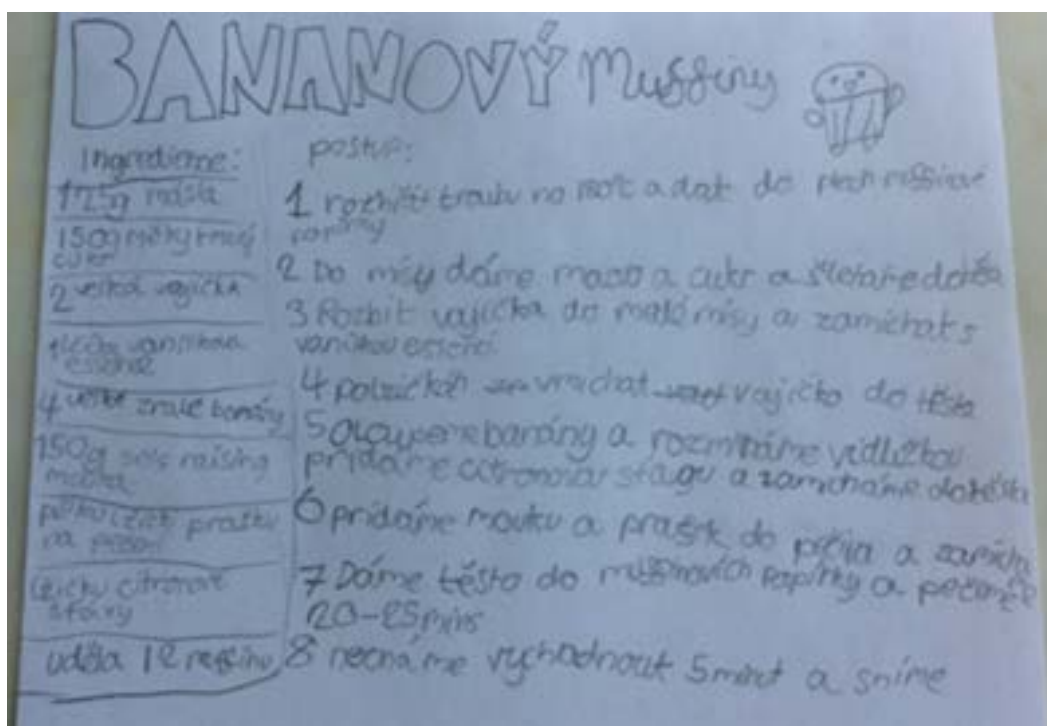 BANANOVÝ Muffiny
Ingredience:
125g másla
150gměky tmavý
cukr
2 velká vajíčka
vanilková
esence
4 velké zralé banány
150g self raising
mouka
půlku lžičky prášku
na pečení
Lžičku citronové
šťávy
udělá 12 muffinu
postup:
1 rozhřít troubu na a dát do plech muffinové
papírky
2 Do mísy dáme maslo a cukr a šleháme dohěba
3 Rozbít vajíčka do malé mísy a zamíchat s
vanilkou esencí
4 vmíchat vajíčko do těsta
5 oloupeme banány a rozmačkáme vidličkou
přidáme citronovou stagu a zamícháme do těsta
6 přidáme mouku a prašek do pečia a zamícha
7 Dáme těsto do muffinových papírky a pečeme
20-25 mins
8 necháme vychadnout 5 minut a sníme